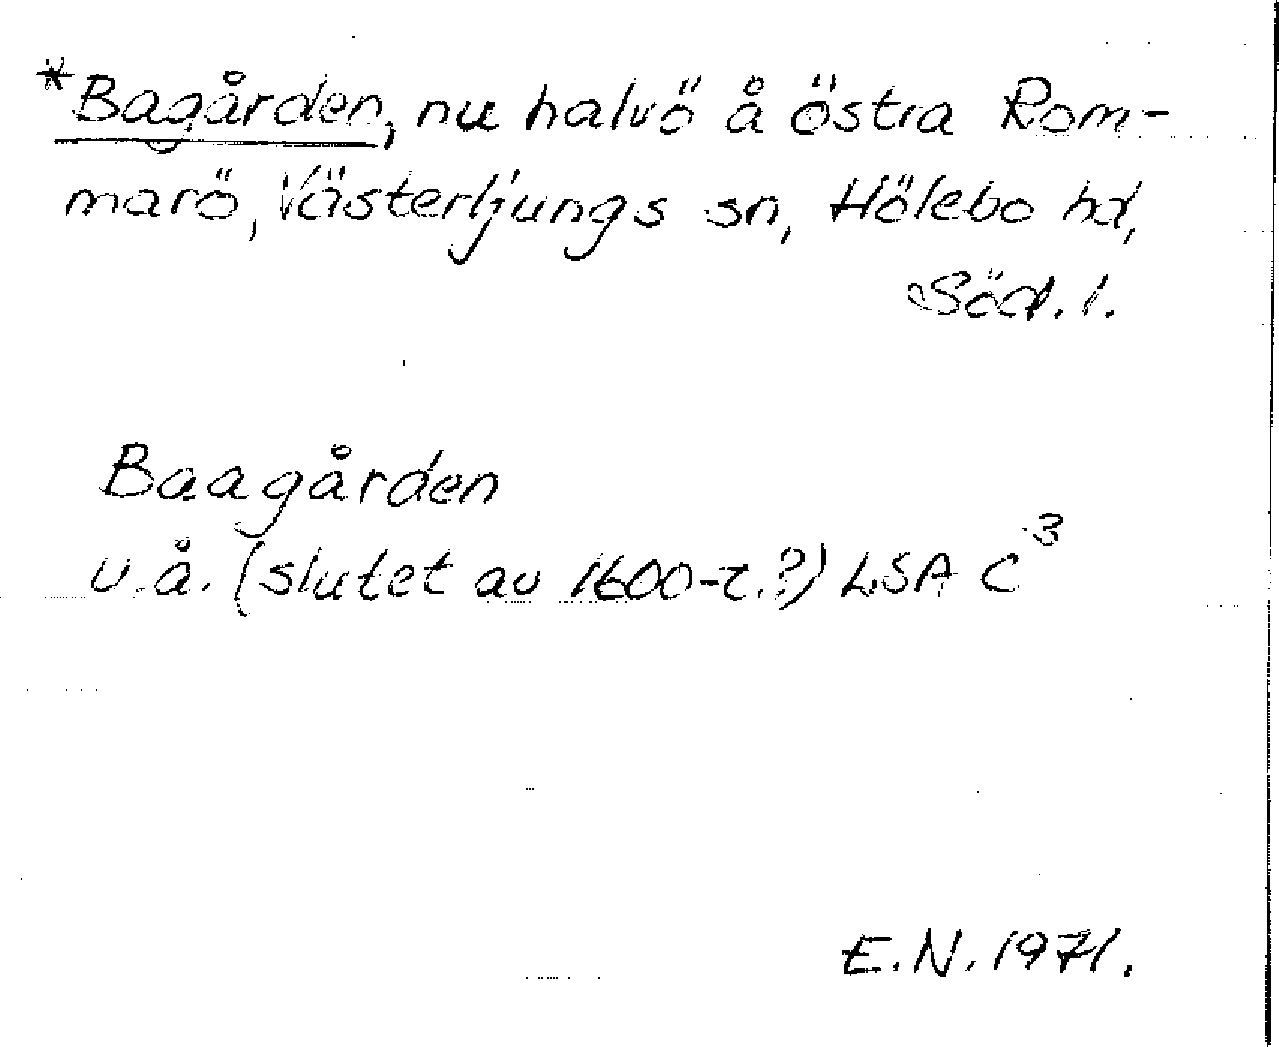 *Bagården, nu halvö å östra Rom-
marö, Västerljungs sn, Hölebo hd,
Söd. l.
Baagården
u.å. (slutet av 1600-t.?) LSA C³
E.N. 1971.